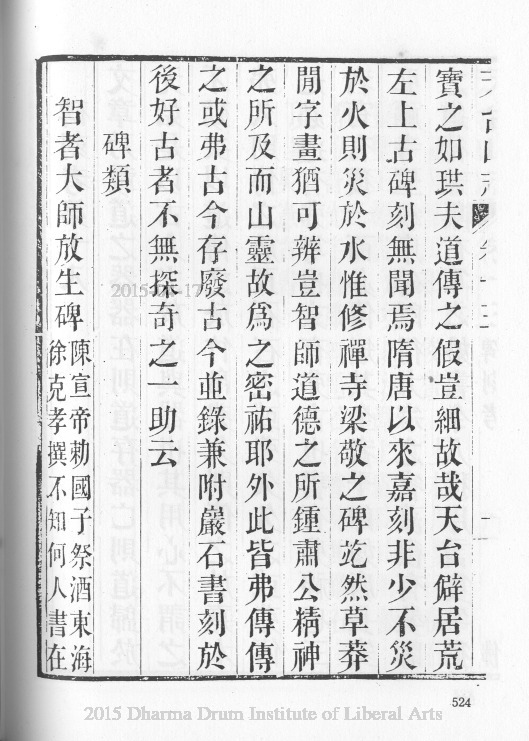 寶之如珙夫道傳之假豈細故哉天台僻居荒
左上古碑刻無聞焉隋唐以來嘉刻非少不災
於火則災於水惟修禪寺梁敬之碑屹然草莽
閒字畫猶可辨豈智師道德之所鍾肅公精神
之所及而山靈故爲之密祐耶外此皆弗傳傳
之或弗古今存廢古今並錄兼附巖石書刻於
後好古者不無探奇之一助云
碑類
智者大師放生碑
陳宣帝勅國子祭酒東海
徐克孝撰不知何人書在
524
2015 Dharma Drum Institute of Liberal Arts